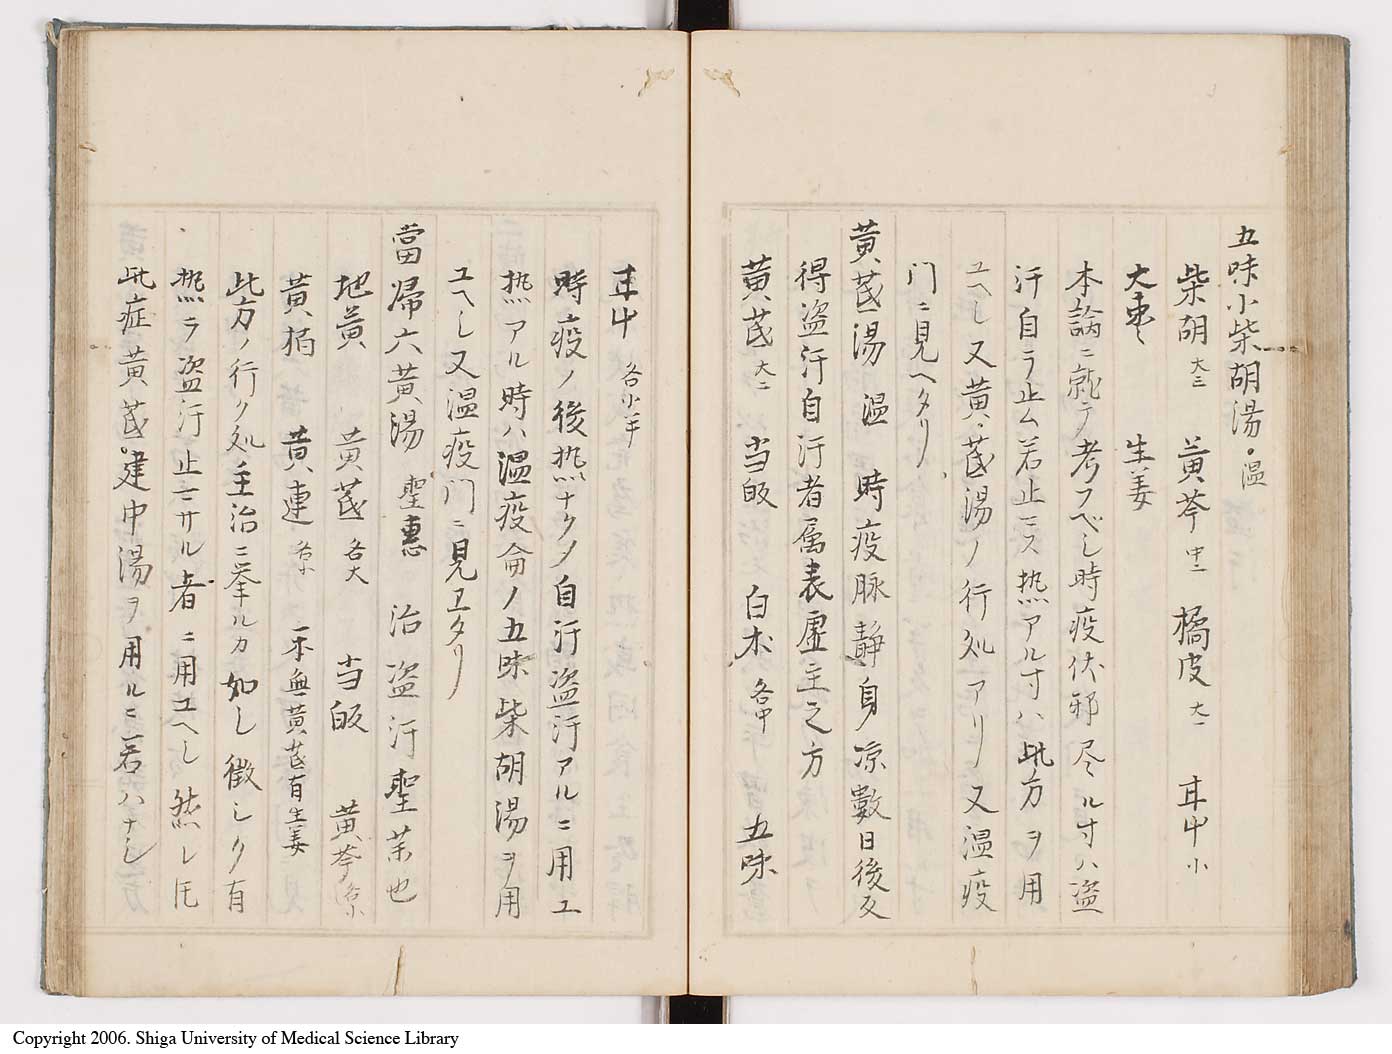 五味小柴胡湯・温
柴胡 大三 黄芩 中二 橘皮 大一 甘中 小
大棗 生姜
本論ニ就テ考フベし時疫伏邪尽ル寸ハ盗
汗自ラ止ム若止ミス热アル寸ハ此方ヲ用
ユヘし又黄芪湯ノ行処アリ又温疫
门ニ見ヘタリ
黄芪湯 温 時疫脉靜身凉數日後反
得盗汗自汗者属表虚主之方
黄芪 大二 当皈 白朮 各中 五味
甘中 各小半
時疫ノ後热ナクノ自汗盗汗アルニ用ユ
热アル時ハ温疫侖ノ五味柴胡湯ヲ用
ユヘし又温疫门ニ見ヱタリ
當帰六黄湯 聖惠 治盗汗聖薬也
地黄 黄芪 各大 当皈 黄芩 各小
黄栢 黄連 各小 一本無黄芪有生姜
此方ノ行ク処主治ニ挙ルカ如し徴シク有
热ラ盗汗止ミサル者ニ用ユヘし然レ㐧
此症黄芪建中湯ヲ用ルニ若ハナし
Copyright 2006. Shiga University of Medical Science Library